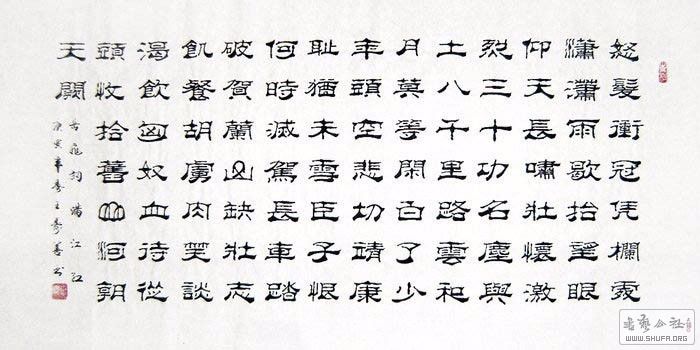 怒髮衝冠凭欄處
瀟瀟雨歇抬望眼
仰天長嘯壯懷激
烈三十功名塵與
土八千里路雲和
月莫等閒白了少
年頭空悲切靖康
耻猶未雪臣子恨
何時滅駕長車踏
破賀蘭山缺壯志
飢餐胡虜肉笑談
渴飲匈奴血待從
頭收拾舊山河朝
天闕
岳飛詞滿江紅
庚寅年春王壽善书
书艺公社
WWW.SHUFA.ORG